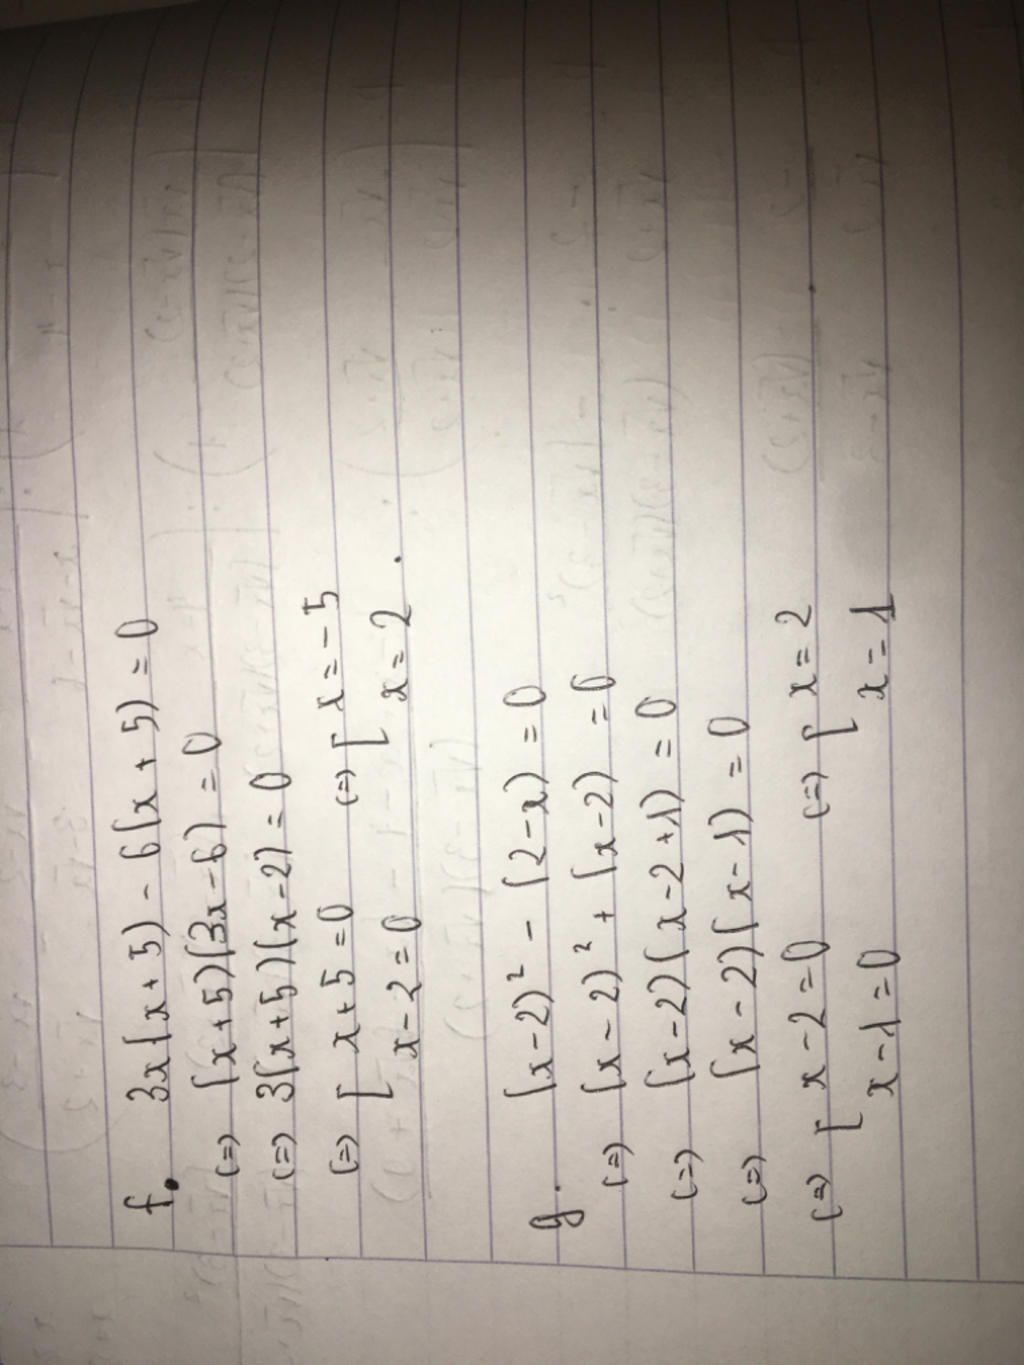 f. 3x(x+5) - 6(x+5) = 0
(=) (x+5)(3x-6) = 0
(=) 3(x+5)(x-2) = 0
(=) [ x+5=0 (=) [ x=-5
x-2=0 x=2.
g. (x-2)² - (2-x) = 0
(=) (x-2)² + (x-2) = 0
(=) (x-2)(x-2+1) = 0
(=) (x-2)(x-1) = 0
(=) [ x-2=0 (=) [ x=2
x-1=0 x=1